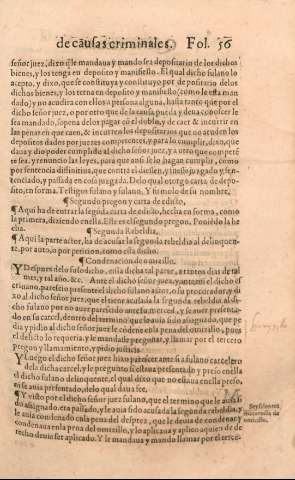 de causas criminales. Fol. 56
señor juez, dixo q̃ le mandaua y mando sea depositario de los dichos
bienes, y los tenga en deposito y manifiesto. El qual dicho fulano lo
acepto, y dixo, que se constituya y constituyo por depositario delos
dichos bienes, y los terna en deposito y manifiesto (como le esta man
dado) y no acudira con ellos a persona alguna, hasta tanto que por el
dicho señor juez, o por otro que de la causa pueda y deua conocer le
sea mandado, so pena delos pagar cõ el doblo, y de caer & incurrir en
las penas en que caen, & incurren los depositarios que no acuden los
depositos dados por juezes competentes, y para lo cumplir, dixo, que
daua y dio poder cumplido al dicho señor juez, y a otro que compete
te sea, y renuncio las leyes, para que ansi se lo hagan cumplir, como
por sentencia difinitiua, que contra el diessen, y fuesse juzgado y sen-
tenciado, y passada en cosa juzgada. Delo qual otorgo carta de depo-
sito, en forma. Testigos fulano y fulano. Y firmolo de su nombre,
¶ Segundo pregon y carta de edicto.
¶ Aqui ha de entrar la segũda carta de edicto, hecha en forma, como
la primera, diziendo en ella. Este es el segundo pregon. Poniẽdo la he
cha. ¶ Segunda Rebeldia.
¶ Aqui la parte actor, ha de acusar la segunda rebeldia al delinquen-
te, por auto, o por peticion, como esta dicho.
¶ Condenacion de omezillo.
Y Despues delo susodicho, en la dicha tal parte, a tantos dias de tal
mes, y tal año, &c. Ante el dicho señor juez, y ante mi el dicho es
criuano, parescio presente el dicho fulano actor, o su procurador, y di
xo al dicho señor juez, que el tiene acusada la segunda rebeldia al di-
cho fulano por no auer parescido ante su merced, y se auer presenta-
do en su carcel, dentro del termino que le auia sido asignado, que pe
dia y pidio al dicho señor juez le cõdene en la pena del omezillo, pues
el delicto lo requeria, y le mandasse pregonar, y llamar por el tercero
pregon y llamamiento, y pidio justicia.
¶ Y luego el dicho señor juez hizo parescer ante si a fulano carcelero
dela dicha carcel, y le pregunto si estaua presentado y preso en ella
el dicho fulano delinquente, el qual dixo que no estaua en ella preso,
ni se auia presentado, delo qual daua fee.
¶ Y visto por el dicho señor juez fulano, que el termino que le auia si
do asignado era passado, y le auia sido acusada la segunda rebeldia, y
le auia condenado en la pena del desprez, que le deuia de condenar y
condenaua en la pena del omezillo, y lo aplicaua y aplico a quien de de
recho deuia ser aplicado. Y le mandaua y mando llamar por el terce-
omezillo.